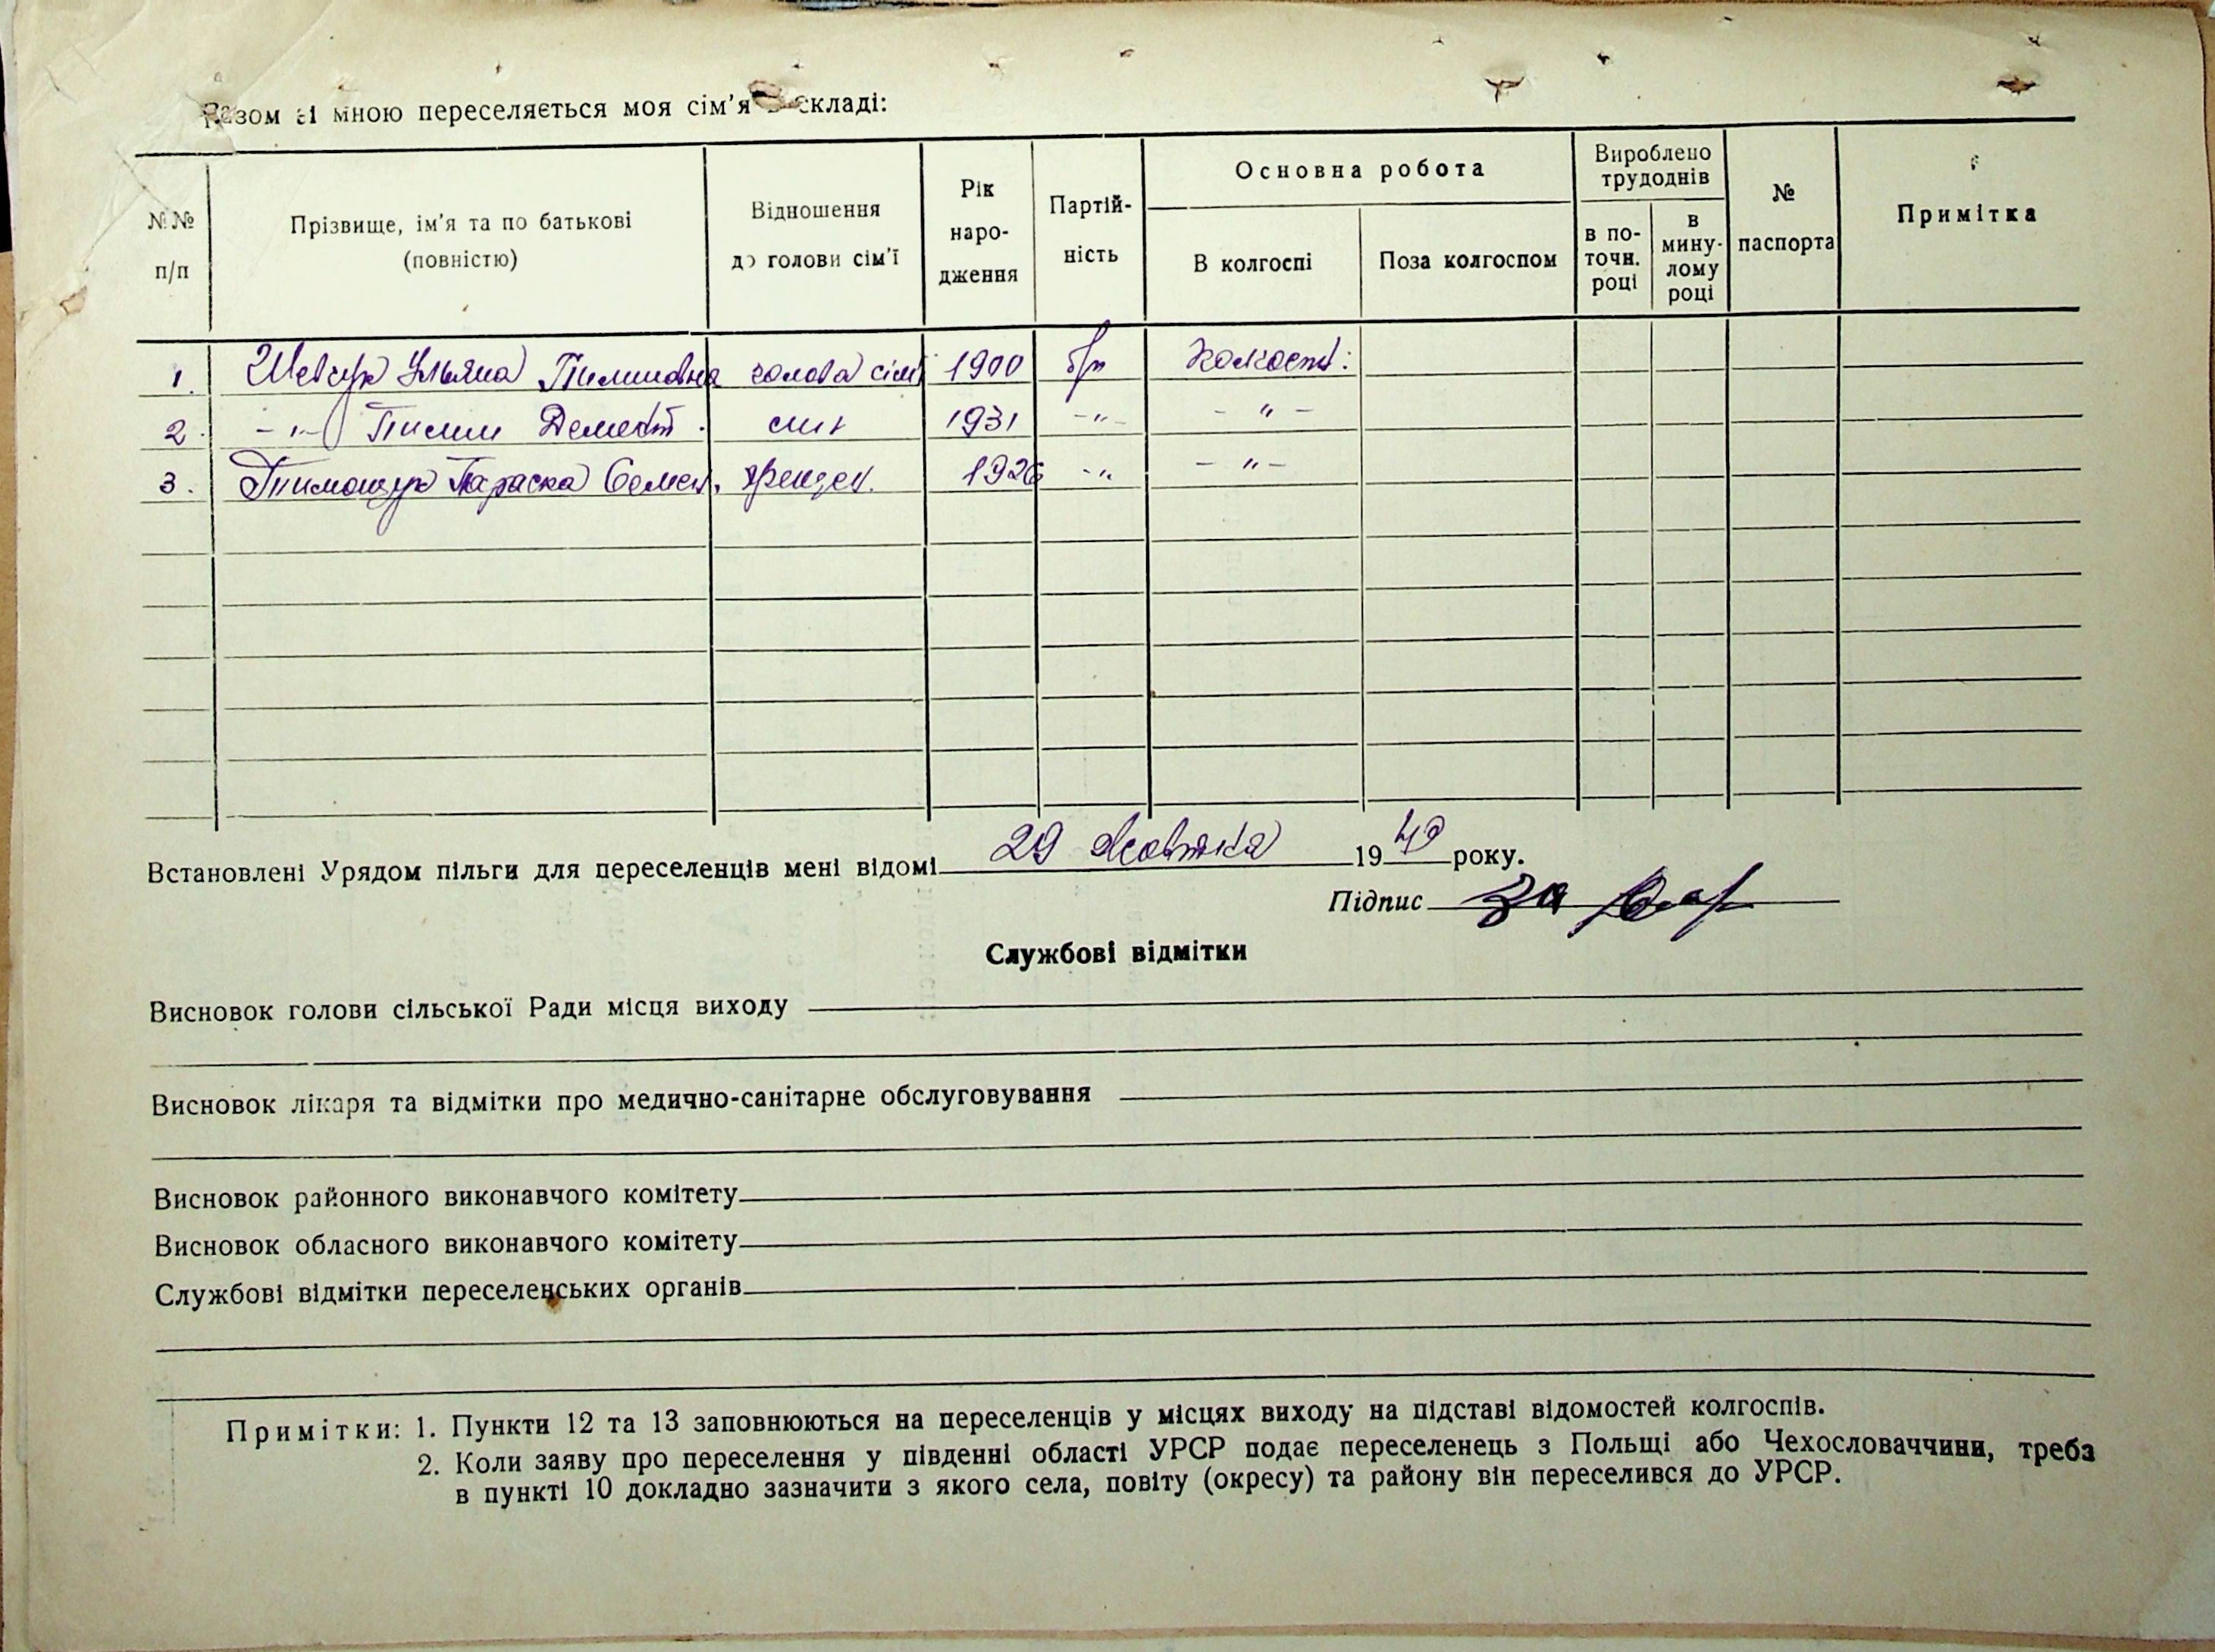 Разом зі мною переселяється моя сім'я в складі:
№№ п/п
Прізвище, ім'я та по батькові (повністю)
Відношення до голови сім'ї
Рік народження
Партійність
Основна робота
В колгоспі
Поза колгоспом
Вироблено трудоднів
в поточн. році
в минулому році
№ паспорта
Примітка
1. Шевчук Уляна Тимишовна голова сім 1900 б/п
2. -"- Тимиш Демент. син 1931 -"- -"-
3. Тимощук Параска Семен. 1926 -"- -"-
Встановлені Урядом пільги для переселенців мені відомі 29 жовтня 1949 року.
Підпис за
Службові відмітки
Висновок голови сільської Ради місця виходу
Висновок лікаря та відмітки про медично-санітарне обслуговування
Висновок районного виконавчого комітету
Висновок обласного виконавчого комітету
Службові відмітки переселенських органів
Примітки: 1. Пункти 12 та 13 заповнюються на переселенців у місцях виходу на підставі відомостей колгоспів.
2. Коли заяву про переселення у південні області УРСР подає переселенець з Польщі або Чехословаччини, треба
в пункті 10 докладно зазначити з якого села, повіту (окресу) та району він переселився до УРСР.